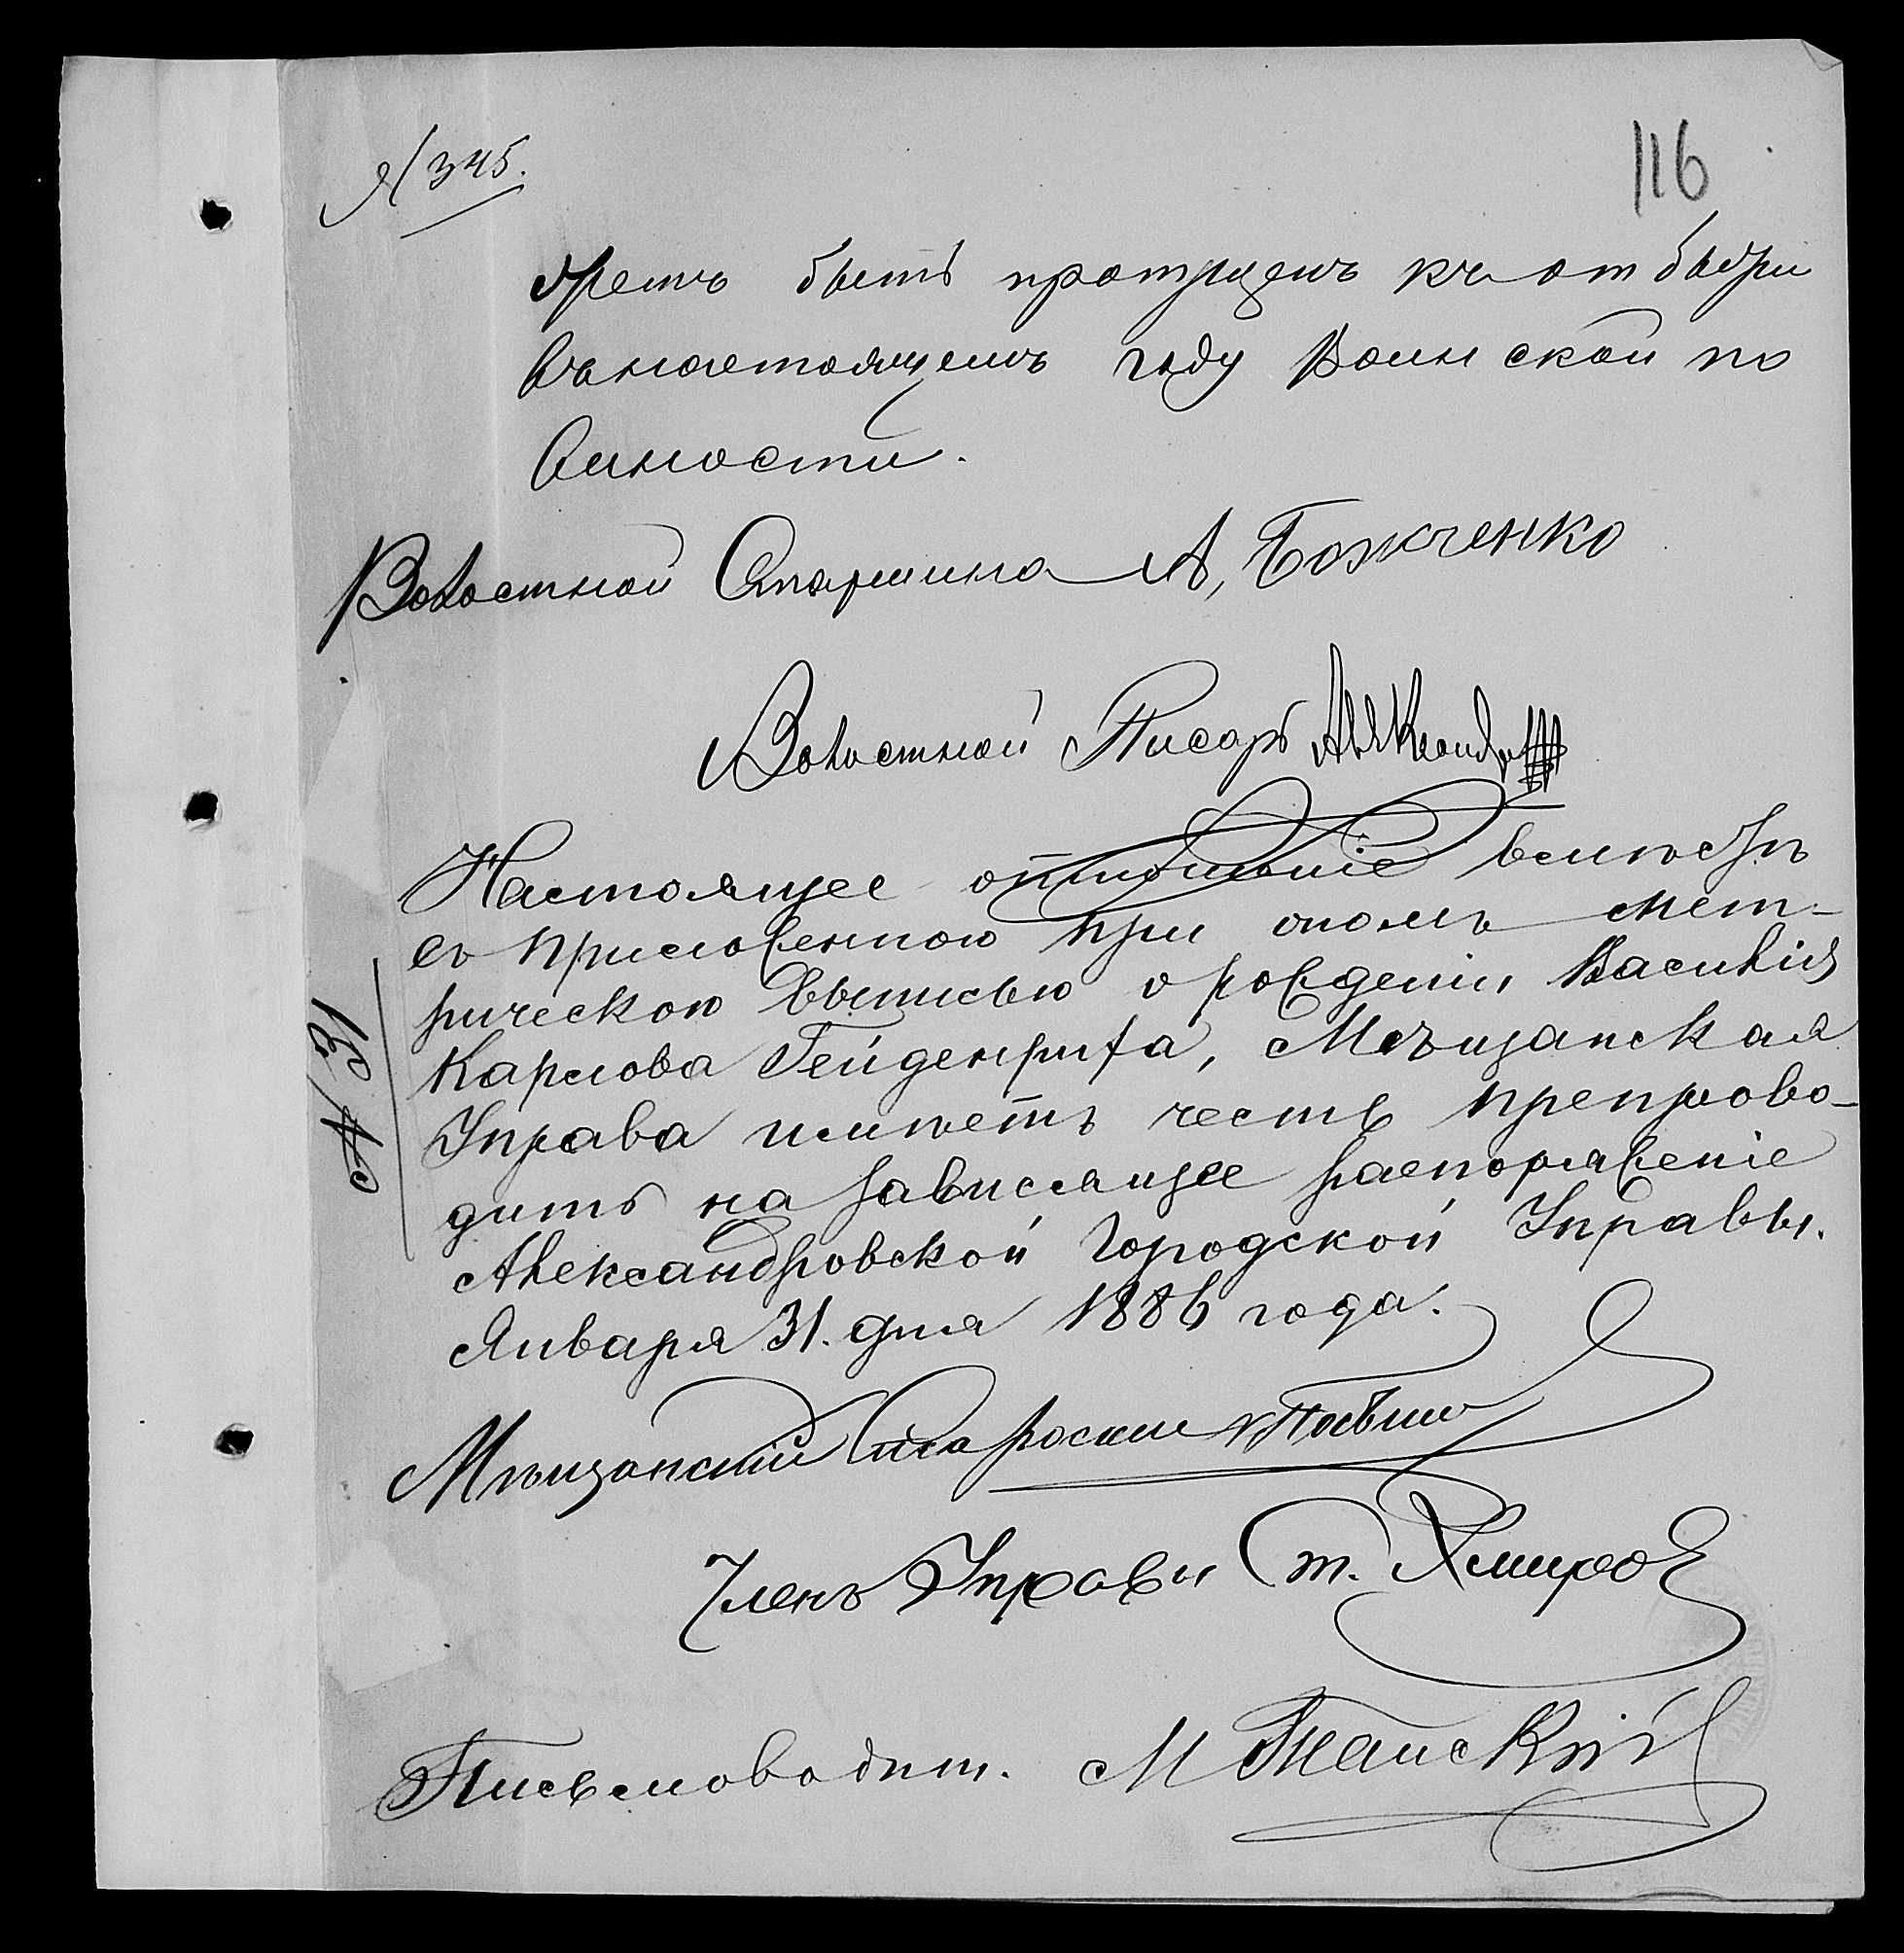 № 345.
116
детъ быть пропущенъ къ отбытри
въ настоящемъ году Воинской по
винности.
Волостной Старшина А, Божченко
Волостной Писарь
Настоящее отношеніе вмѣстѣ
съ приложенною при ономъ мет-
рическою выписью о рожденіи Василія
Карлова Гейденриха, Мѣщанская
Управа имѣетъ честь препрово-
дить на зависящее распоряженіе
Александровской Городской Управы.
Января 31. дня 1886 года.
Мѣщанскій Староста
Членъ Управы
Письмоводит. М
№ 31